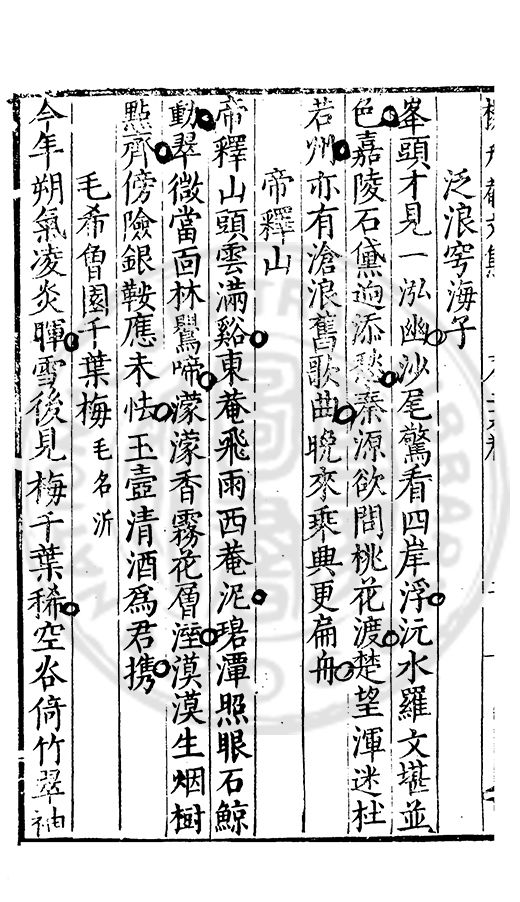 泛浪穹海子
峯頭才見一泓幽沙尾驚看四岸浮沅水羅文堪並
色嘉陵石黛逈添愁秦源欲問桃花渡楚望渾迷杜
若州亦有滄浪舊歌曲晚來乗興更扁舟
帝釋山
帝釋山頭雲滿谿東菴飛雨西菴泥碧潭照眼石鯨
動翠微當面林鸎啼濛濛香霧花層溼漠漠生烟樹
點齊傍險銀鞍應未怯玉壼清酒爲君携
毛希魯園千葉梅毛名沂
今年朔氣凌炎暉雪後見梅千葉稀空谷倚竹翠袖